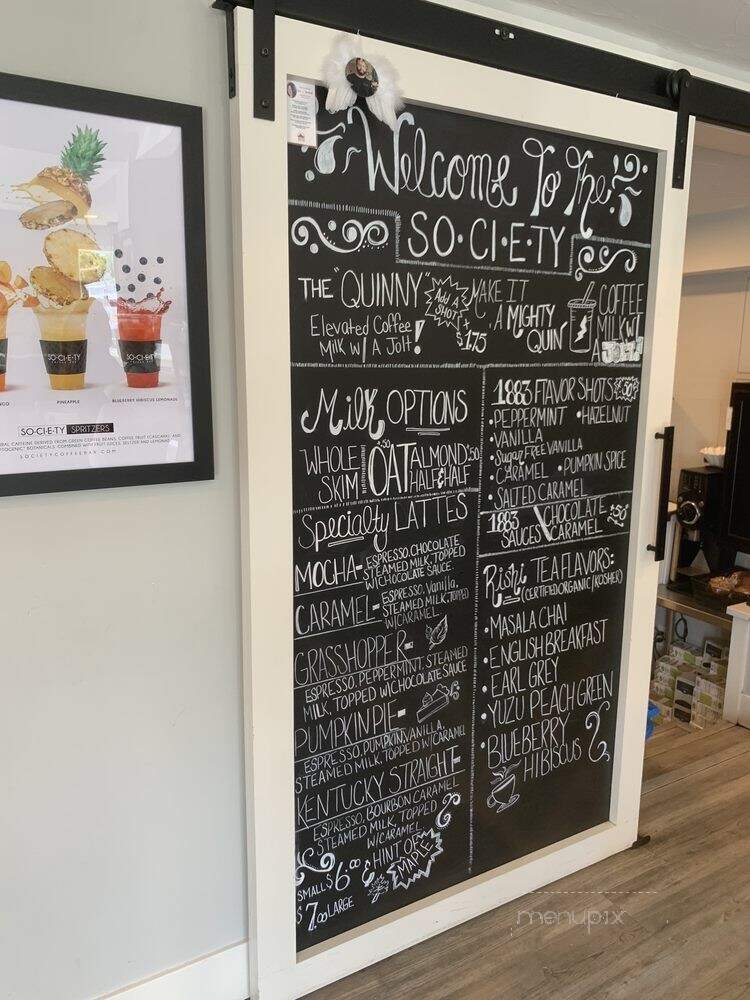 Welcome To The
SO·CI·E·TY
THE "QUINNY"
Elevated Coffee
Milk w/ A Jolt!
Add A
SHOT
$1.75
MAKE IT
A MIGHTY
QUIN
COFFEE
MILK W/
A JOLT
Milk OPTIONS
WHOLE
SKIM
.50
OAT
ALMOND .50
HALF & HALF
Specialty LATTES
MOCHA- ESPRESSO, CHOCOLATE
STEAMED MILK, TOPPED
W/CHOCOLATE SAUCE
CARAMEL- ESPRESSO, Vanilla,
STEAMED MILK, TOPPED
W/CARAMEL
GRASSHOPPER-
ESPRESSO, PEPPERMINT, STEAMED
MILK, TOPPED W/CHOCOLATE SAUCE
PUMPKIN PIE-
ESPRESSO, PUMPKIN, VANILLA,
STEAMED MILK, TOPPED W/CARAMEL
KENTUCKY STRAIGHT-
ESPRESSO, BOURBON CARAMEL
STEAMED MILK, TOPPED
W/CARAMEL
& HINT OF
MAPLE
SMALL $6.00
$7.00 LARGE
1883 FLAVOR SHOTS .50
• PEPPERMINT • HAZELNUT
• VANILLA
• Sugar FREE VANILLA
• CARAMEL • PUMPKIN SPICE
• SALTED CARAMEL
1883 SAUCES CHOCOLATE
CARAMEL .50
Rishi TEA FLAVORS:
(CERTIFIED ORGANIC/KOSHER)
• MASALA CHAI
• ENGLISH BREAKFAST
• EARL GREY
• YUZU PEACH GREEN
• BLUEBERRY
HIBISCUS
SO·CI·E·TY
SO·CI·E·TY
PINEAPPLE
BLUEBERRY HIBISCUS LEMONADE
SO·CI·E·TY SPRITZERS
CAFFEINE DERIVED FROM GREEN COFFEE BEANS, COFFEE FRUIT (CASCARA) AND
BOTANICALS, COMBINED WITH FRUIT JUICES, SELTZER AND LEMONADE
SOCIETYCOFFEEBAR.COM
menupix